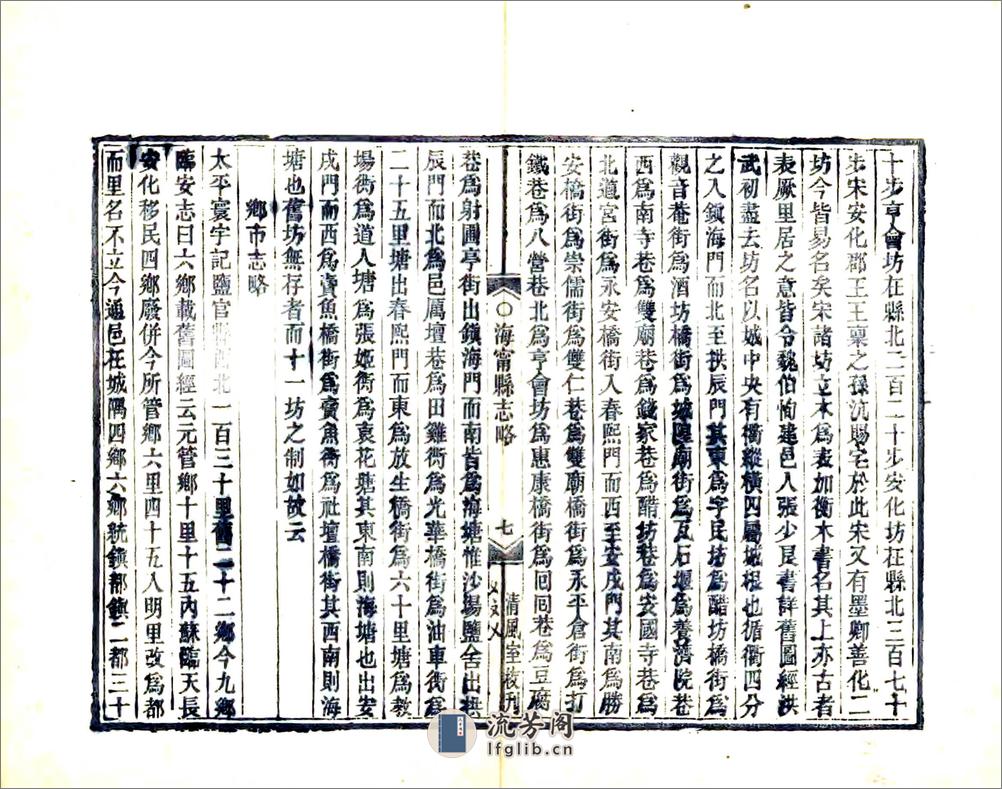 十步亨會坊在縣北二百二十步安化坊在縣北三百七十
步宋安化郡王王稟之孫沆賜宅於此宋又有墨卿善化二
坊今皆易名矣宋諸坊立木為表加衡木書名其上亦古者
表厥里居之意皆令魏伯恂建邑人張少良書詳舊圖經洪
武初盡去坊名以城中央有衢縱橫四屬城根也循衢四分
之入鎮海門而北至拱辰門其東為字民坊為醋坊橋街為
觀音菴街為酒坊橋街為城隍廟街為瓦石堰為養濟院巷
西為南寺巷為雙廟巷為錢家巷為醋坊巷為安國寺巷為
北道宮街為永安橋街入春熙門而西至安戌門其南為勝
安橋街為崇儒街為雙仁巷為雙廟橋街為永平倉街為打
鐵巷為八營巷北為亨會坊為惠康橋街為囘囘巷為豆腐
〇海甯縣志略
七
清風室校刊
巷為射圃亭街出鎮海門而南皆為海塘惟沙場鹽舍出拱
辰門而北為邑厲壇巷為田雞衖為光華橋街為油車衖為
二十五里塘出春熙門而東為放生橋街為六十里塘為教
場衖為道人塘為張姬衖為袁花塘其東南則海塘也出安
戌門而西為賣魚橋街為賣魚衖為社壇橋街其西南則海
塘也舊坊無存者而十一坊之制如故云
鄉市志略
太平寰宇記鹽官縣西北一百三十里舊二十二鄉今九鄉
臨安志曰六鄉載舊圖經云元管鄉十里十五內蘇臨天長
安化移民四鄉廢併今所管鄉六里四十五入明里改為都
而里名不立今通邑在城隅四鄉六鄉統鎮都鎮二都三十
流芳阁
lfglib.cn